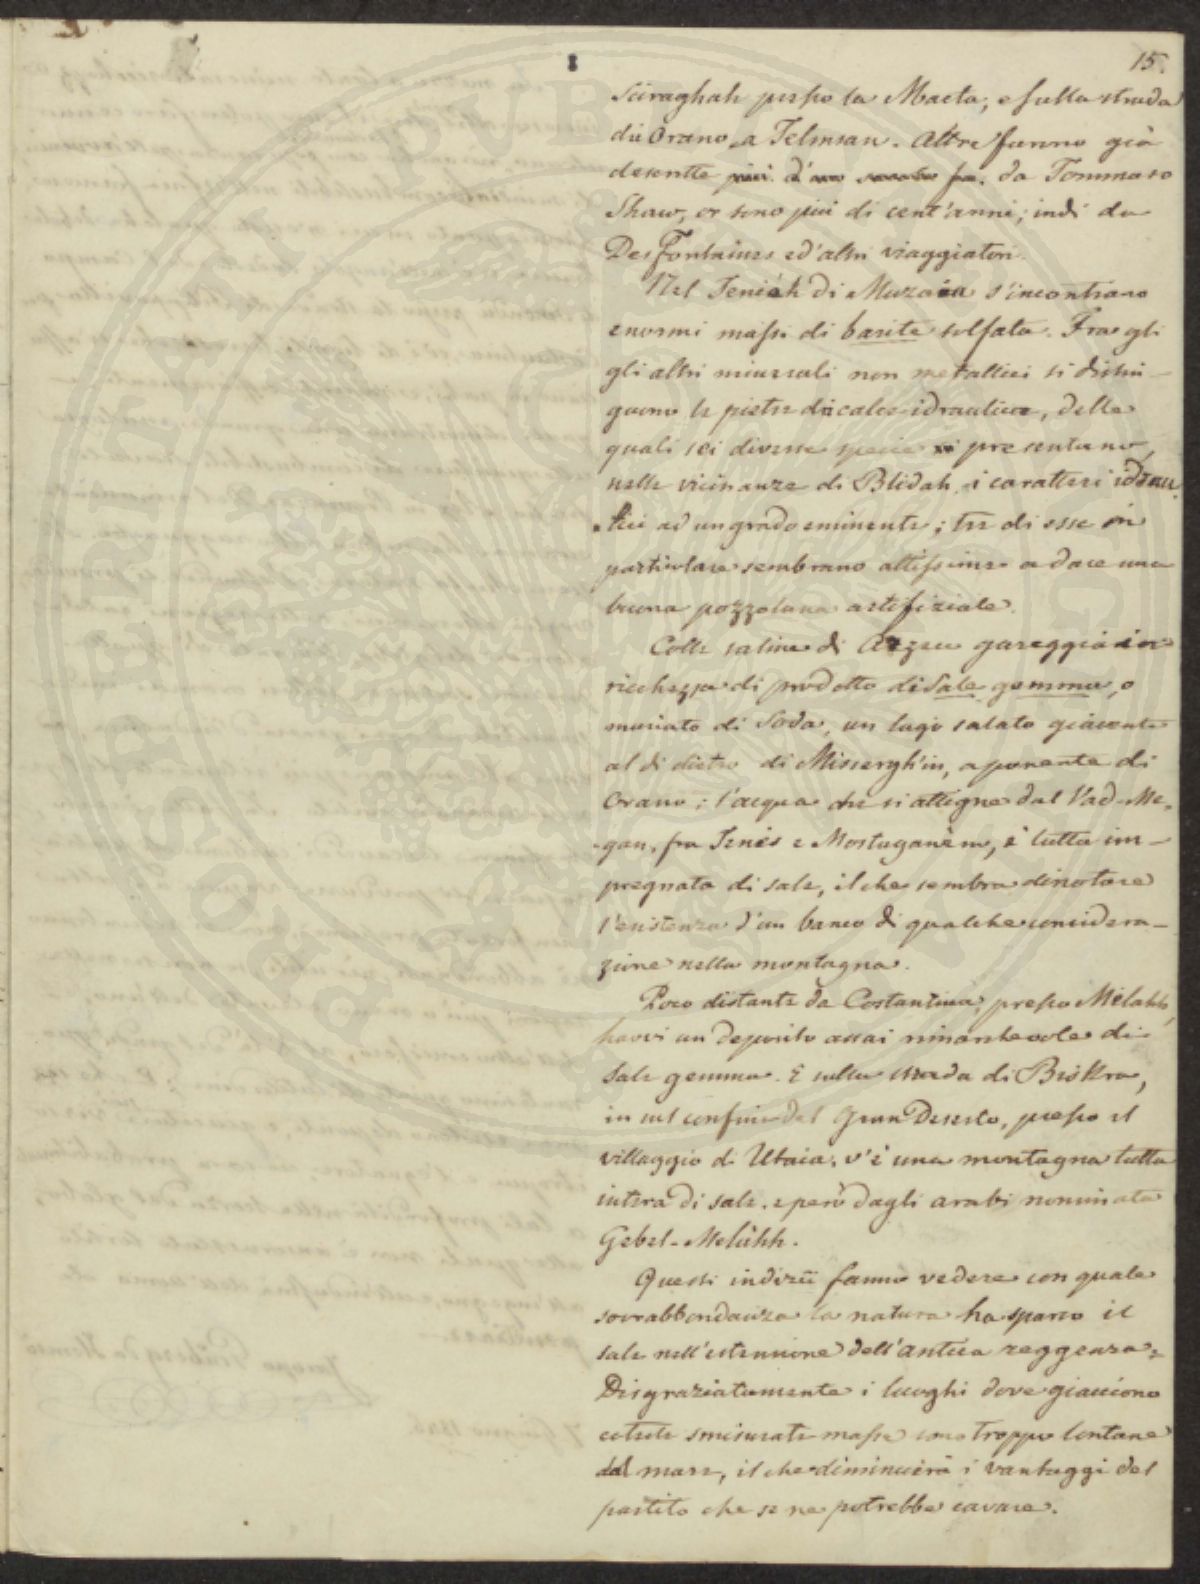 15.
Sciraghah presso la Macta, e sulla strada
di Orano a Telmsan. Altre furono già
descritte da Tommaso
Shaw, or sono più di cent'anni; indi da
DesFontaines ed'altri viaggiatori.
Nel Teniéh di Muzaia s'incontrano
enormi massi di barite solfata. Fra gli
gli altri minerali non metallici si distin-
guono le pietre di calce idraulica, delle
quali sei diverse specie presentano,
nelle vicinanze di Blidah, i caratteri idrau-
lici ad un grado eminente; tre di esse in
particolare sembrano attissime a dare una
buona pozzolana artifiziale.
Colle saline di Arzeu gareggia in
ricchezza di prodotto di Sale gemma, o
muriato di Soda, un lago salato giacente
al di dietro di Misserghin, a ponente di
Orano; l'acqua che si attigne dal Vad-Me-
gan, fra Tenés e Mostaganém, è tutta im-
pregnata di sale, il che sembra dinotare
l'esistenza d'un banco di qualche considera-
zione nella montagna.
Poco distante da Costantina, presso Mélahh,
havvi un deposito assai rimarchevole di
Sale gemma. E sulla strada di Biskra,
in sul confine del Gran Deserto, presso il
villaggio di Utaia, v'è una montagna tutta
intera di sale, e però dagli arabi nominata
Gebel-Melahh.
Questi indizii fanno vedere con quale
sovrabbondanza la natura ha sparso il
sale nell'estensione dell'antica reggenza.
Disgraziatamente i luoghi dove giacciono
coteste smisurate masse sono troppo lontane
dal mare, il che diminuirà i vantaggi del
partito che se ne potrebbe cavare.